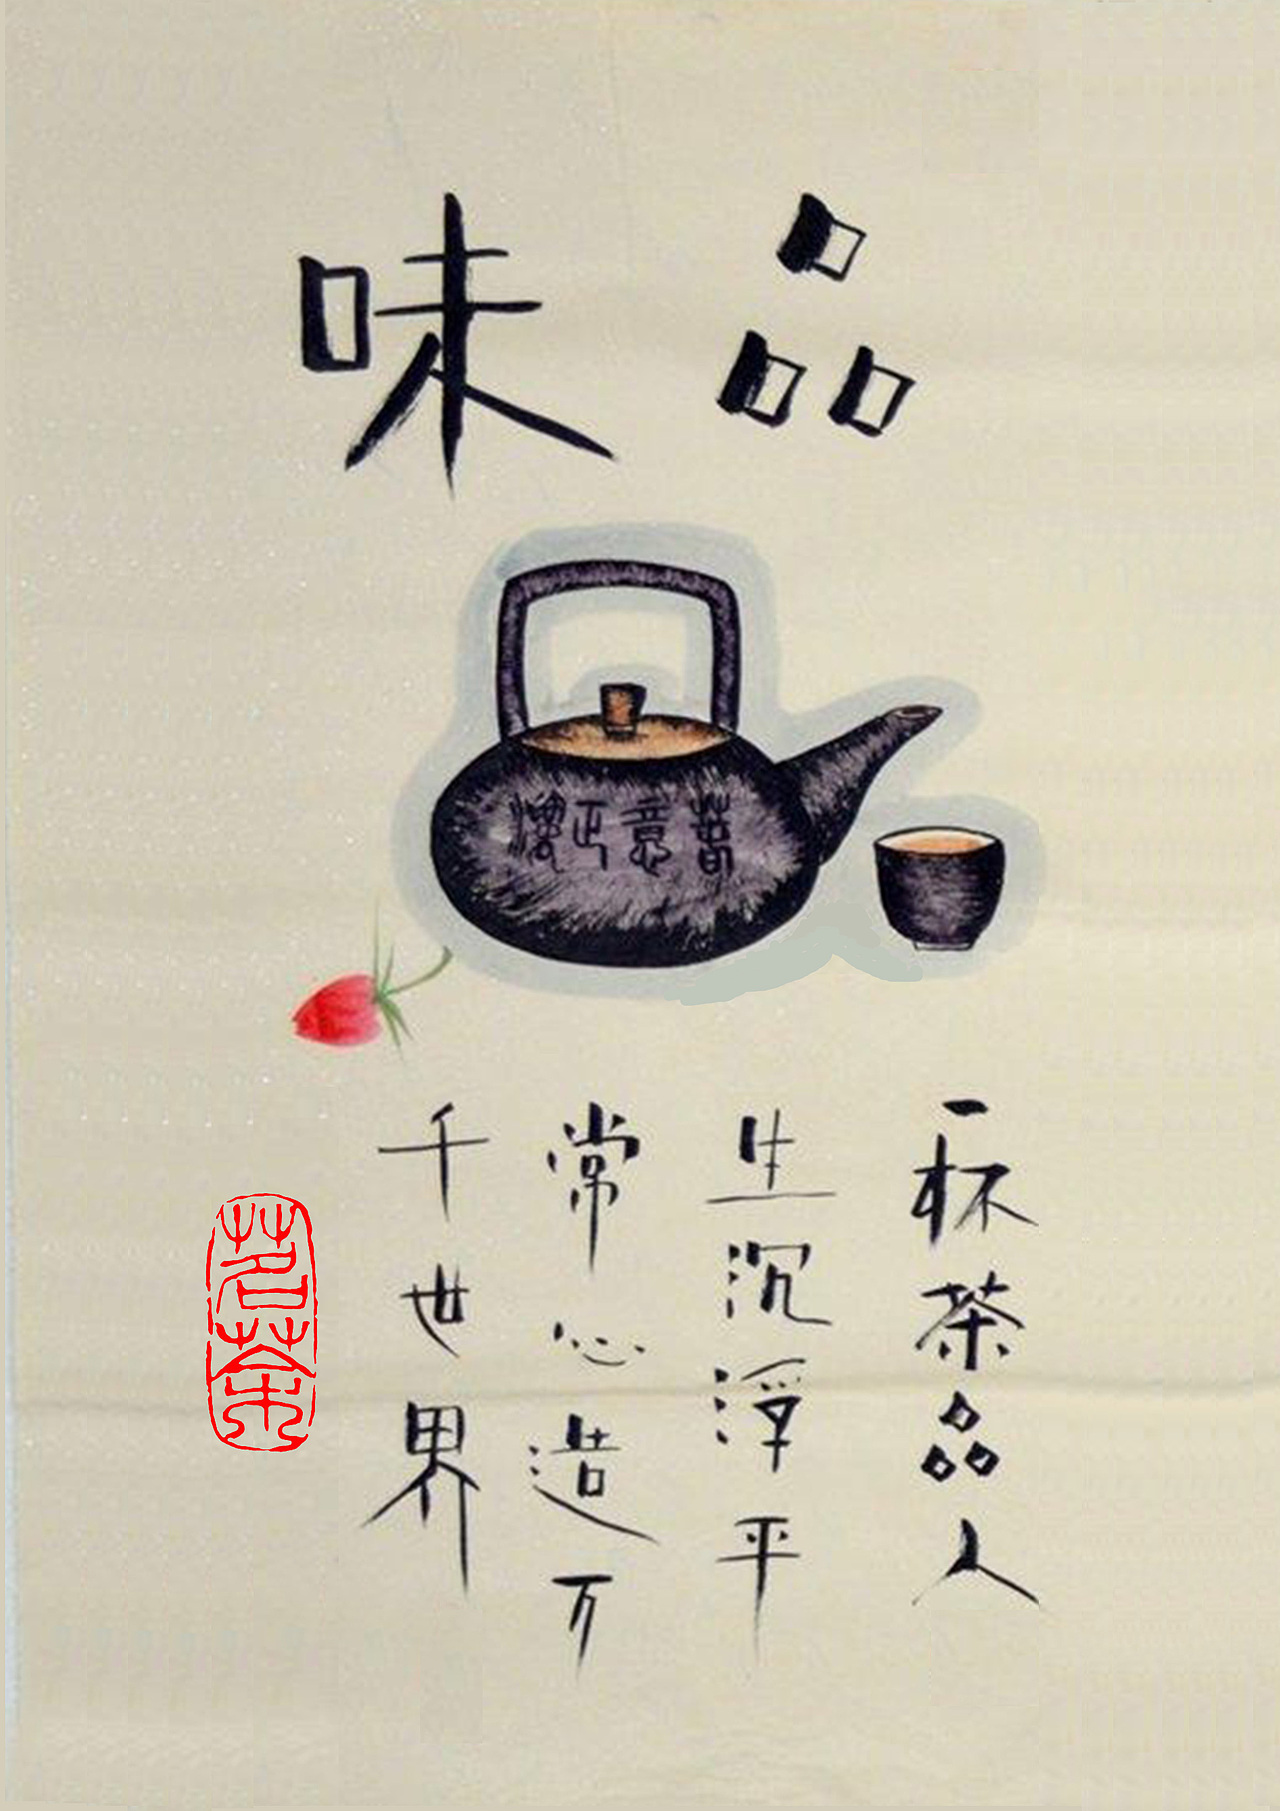 品味
春意正濃
一杯茶品人
生沉浮平
常心造万
千世界
茗茶